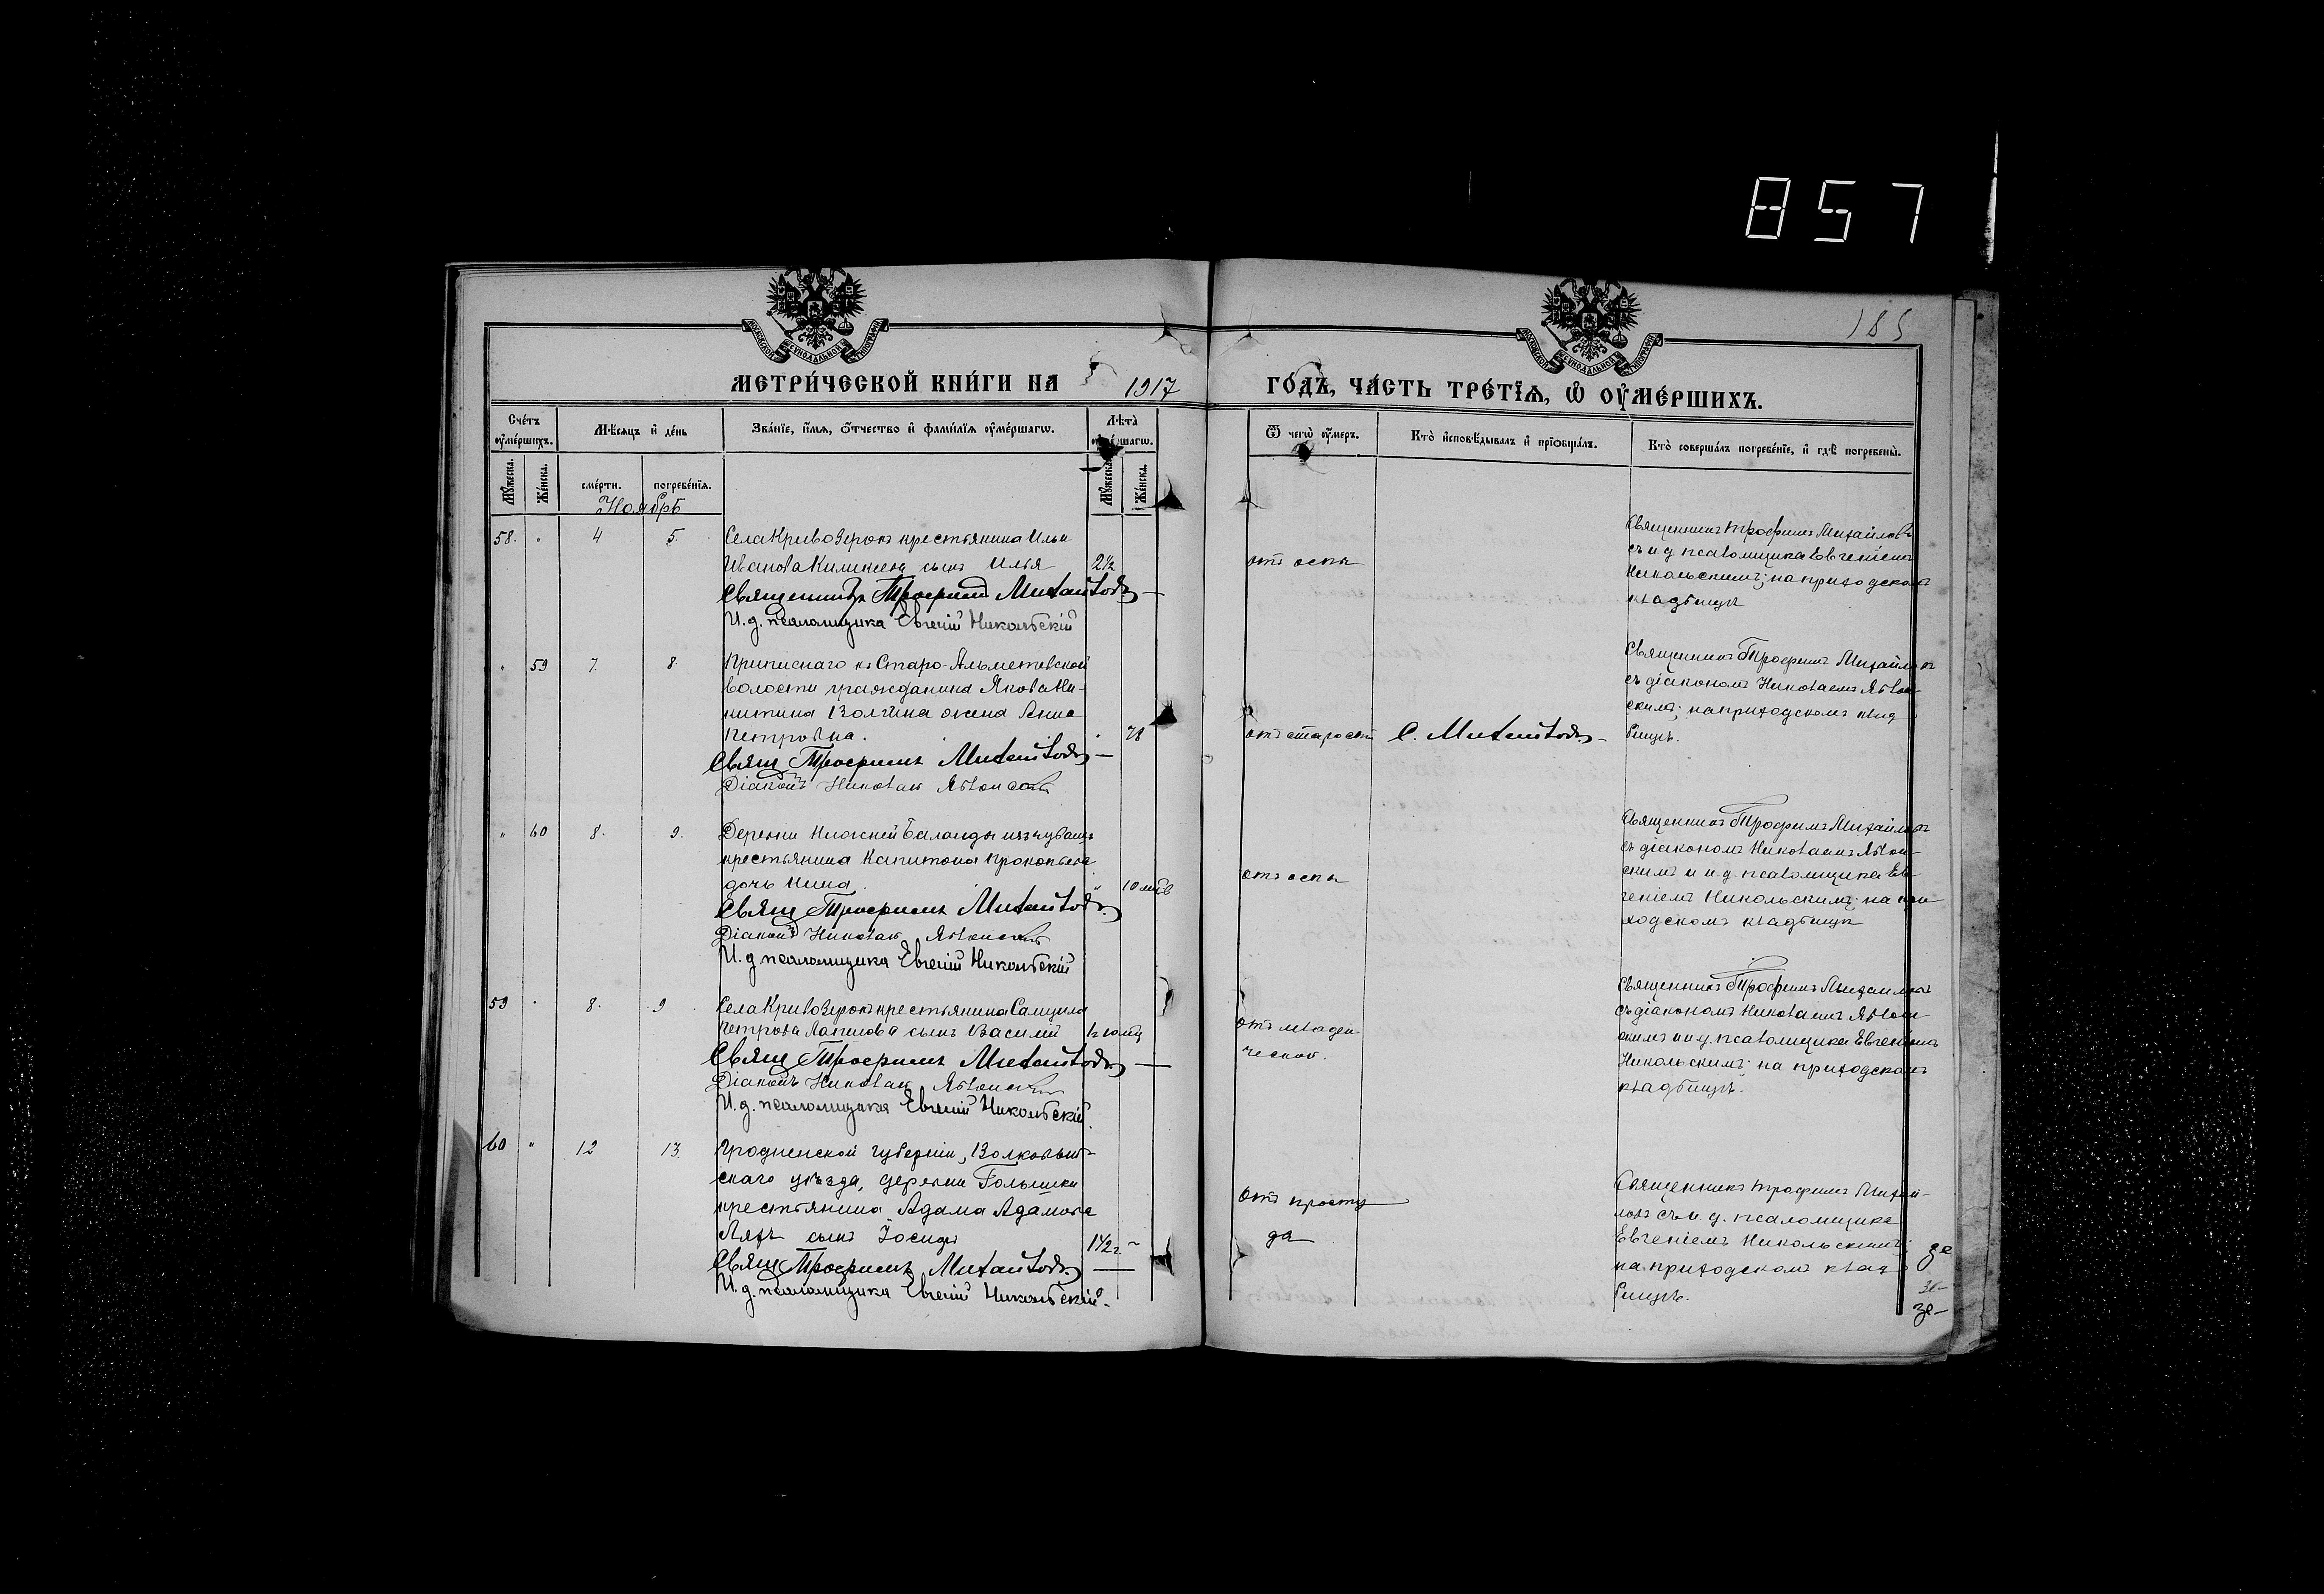 857
185
МОСКОВСКОЙ СѴНОДАЛЬНОЙ ТИПОГРАФІИ
МОСКОВСКОЙ СѴНОДАЛЬНОЙ ТИПОГРАФІИ
МЕТРИ́ЧЕСКОЙ КНИ́ГИ НА 1917
ГО́ДЪ, ЧА́СТЬ ТРЕ́ТЇѦ, Ѡ҆ ОУ҆МЕ́РШИХЪ.
Сче́тъ оу҆ме́ршихъ.
Мѣ́сѧцъ и҆ де́нь
Зва́нїе, и҆́мѧ, ѻ҆́тчество и҆ фамѝлїѧ оу҆ме́ршагѡ.
Лѣ́та̀ оу҆ме́ршагѡ.
Ѿ чегѡ̀ оу҆́меръ.
Кто̀ и҆сповѣ́дывалъ и҆ прїѻбща́лъ.
Кто̀ соверша́лъ погребе́нїе, и҆ гдѣ̀ погребены̀.
Мꙋ́жеска.
Же́нска.
сме́рти.
погребе́нїѧ.
Мꙋ́жеска.
Же́нска.
Ноябрь
58. " 4 5. Села Кривозерокъ крестьянина Ильи
Иванова сынъ Илья 2½
Священникъ Трофимъ Михайловъ
И. д. псаломщика Евгеній Никольскій
отъ оспы
Священникъ Трофимъ Михайловъ
съ и д псаломщика Евгеніемъ
Никольскимъ; на приходскомъ
кладбищѣ
" 59 7. 8. Приписнаго къ Старо-Альметевской
волости гражданина Якова Ни-
китина Волгина жена Анна
Петровна. " 78
Свящ Трофимъ Михайловъ
Діаконъ Николай
отъ старости
С. Михайловъ
Священникъ Трофимъ Михайловъ
съ діакономъ Николаемъ
скимъ; на приходскомъ клад
бищѣ.
" 60 8. 9. Деревни Нижней Баланды изъ чувашъ
крестьянина Капитона Прокопьева
дочь Нина. " 10 мѣс
Свящ Трофимъ Михайловъ
Діаконъ Николай
И. д псаломщика Евгеній Никольскій
отъ оспы
Священникъ Трофимъ Михайловъ
съ діакономъ Николаемъ
скимъ и и. д. псаломщика Ев
геніемъ Никольскимъ; на при
ходскомъ кладбищѣ
59 " 8. 9 Села Кривозерокъ крестьянина Самуила
Петрова сынъ Василій
Свящ Трофимъ Михайловъ
Діаконъ Николай
И. д. псаломщика Евгеній Никольскій.
отъ младен
ческой.
Священникъ Трофимъ Михайловъ
съ діакономъ Николаемъ
скимъ и и д. псаломщика Евгеніемъ
Никольскимъ; на приходскомъ
кладбищѣ.
60 " 12 13. Гродненской губерніи, Волковыс-
скаго уѣзда, деревни Голышки
крестьянина Адама Адамова
сынъ Іосифъ 1½ г.
Свящ Трофимъ Михайловъ
И. д. псаломщика Евгеній Никольскій.
отъ просту
да
Священникъ Трофимъ Михай-
ловъ съ и. д. псаломщика
Евгеніемъ Никольскимъ;
на приходскомъ клад
бищѣ.